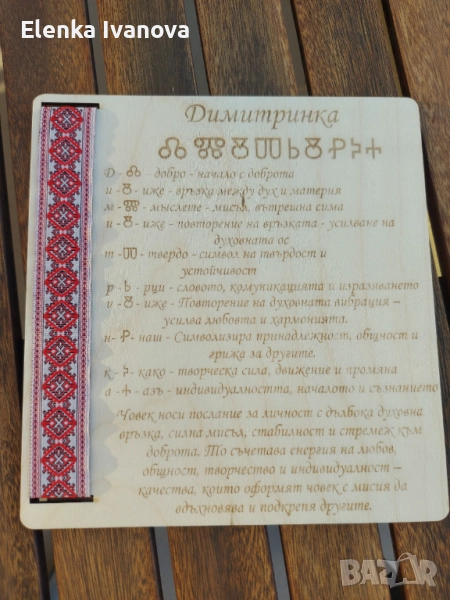 Elenka Ivanova
Димитринка
ⰄⰊⰏⰊⰕⰓⰊⰐⰍⰀ
Д - Ⰴ - добро - начало с доброта
и - Ⰻ - иже - връзка между дух и материя
м - Ⰿ - мыслете - мисъл, вътрешна сила
и - Ⰻ - иже - повторение на връзката - усилване на
духовната ос
т - Ⱅ - твердо - символ на твърдост и
устойчивост
р - Ⱃ - рци - словото, комуникацията и изразяването
и - Ⰻ - иже - Повторение на духовната вибрация –
усилва любовта и хармонията.
н - Ⱀ - наш - Символизира принадлежност, общност и
грижа за другите.
к - Ⰽ - како - творческа сила, движение и промяна
а - Ⰰ - азъ - индивидуалността, началото и съзнанието
Човек носи послание за личност с дълбока духовна
връзка, силна мисъл, стабилност и стремеж към
доброта. То съчетава енергия на любов,
общност, творчество и индивидуалност –
качества, които оформят човек с мисия да
вдъхновява и подкрепя другите.
bazar.bg